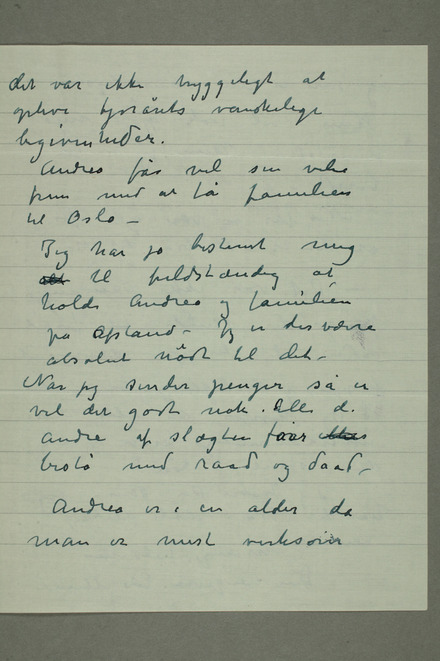 det var ikke hyggeligt at
opleve fjorårets vanskelige
begivenheder.
Andrea får vel sin vilie
frem med at få familien
til Oslo –
Jeg har jo bestemt mig
til fuldstændig at
holde Andrea og familien
på afstand – Jeg er desværre
absolut nödt til det –
Når jeg sender penger så er
vel det godt nok. Alle de
andre af slægten faar
bistå med raad og daad –
Andrea er i en alder da
man er mest